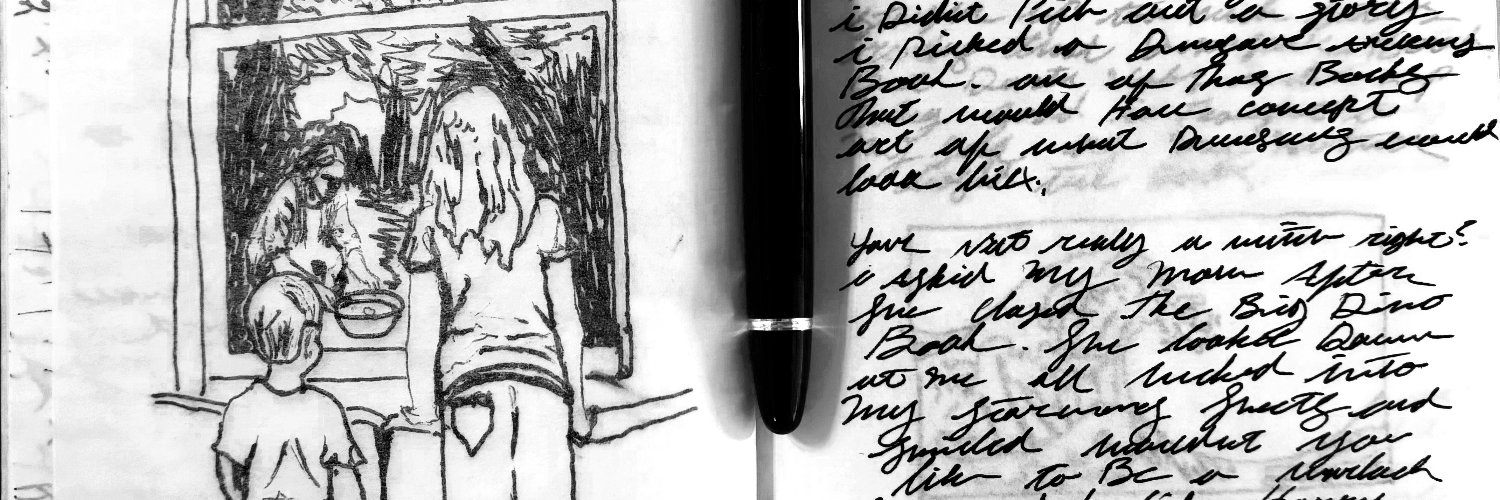 i Didn't Pick out a story
i Picked a Dinosaur
Book. one of thos Books
that would Have concept
art of what Dinosaurs would
look like.
Your not really a witch right?
i asked my Mom After
She closed the Big Dino
Book. She looked Down
at me all tucked into
My starwars Sheets and
Smiled wouldnt you
like to Be a warlock